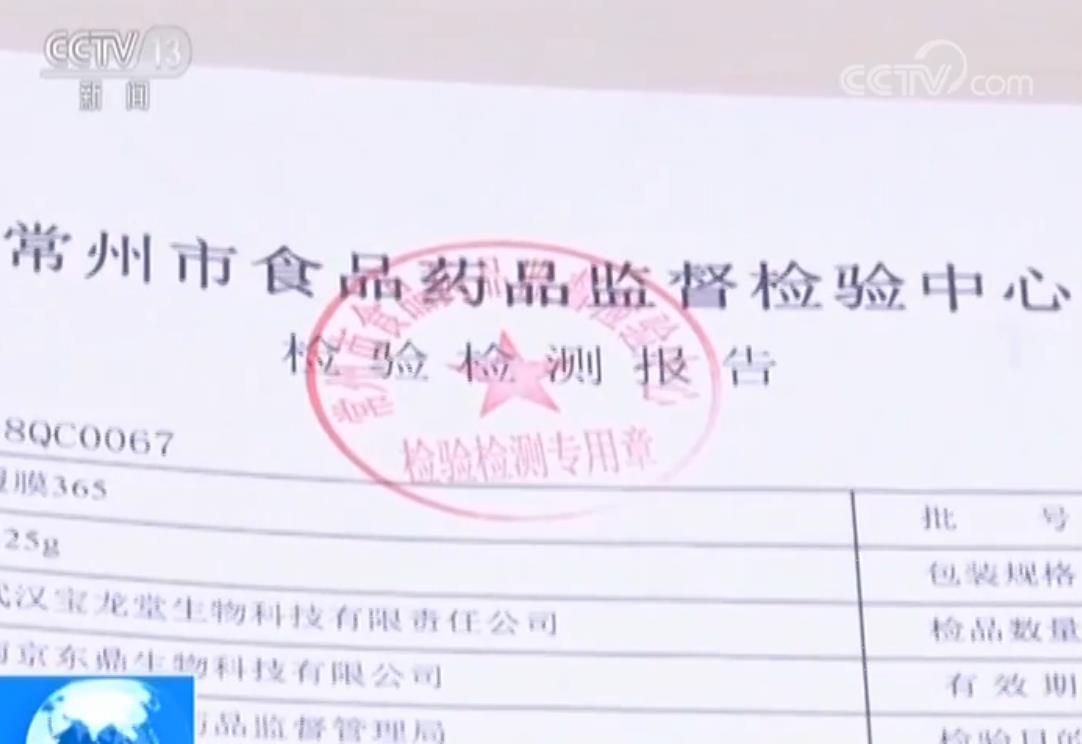 CCTV 13
新闻
CCTV.com
常州市食品药品监督检验中心
检验检测报告
检验检测专用章
8QC0067
膜365
批号
25g
包装规格
汉宝龙堂生物科技有限责任公司
检品数量
京东鼎生物科技有限公司
有效期
药品监督管理局
检验目的